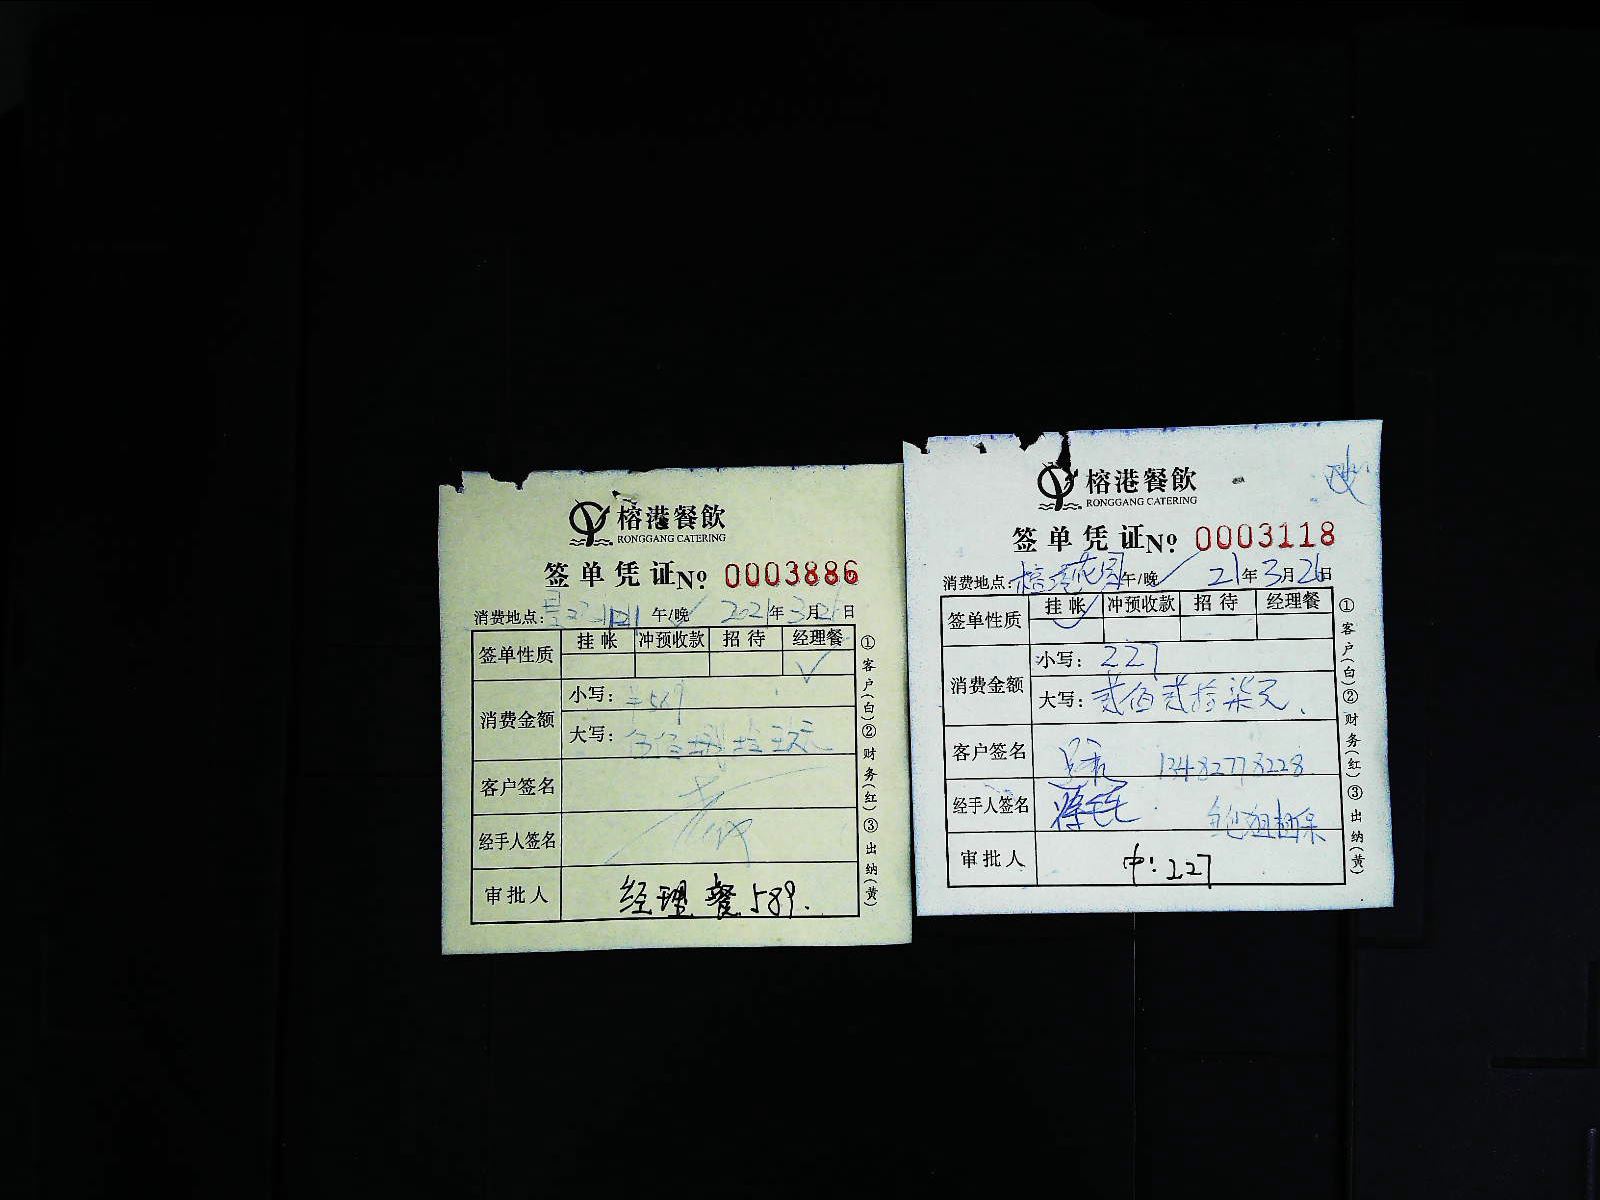 榕港餐飲
RONGGANG CATERING
签单凭证 No. 0003886
消费地点: 午/晚 2021年3月26日
签单性质 挂帐 冲预收款 招待 经理餐
消费金额
小写:
大写:
客户签名
经手人签名
审批人 经理餐 589.
①客户(白)②财务(红)③出纳(黄)
榕港餐飲
RONGGANG CATERING
签单凭证 No. 0003118
消费地点: 榕港花园 午/晚 21年3月26日
签单性质 挂帐 冲预收款 招待 经理餐
消费金额
小写: 227
大写: 贰佰贰拾柒元.
客户签名 13482778228
经手人签名
审批人 227
①客户(白)②财务(红)③出纳(黄)